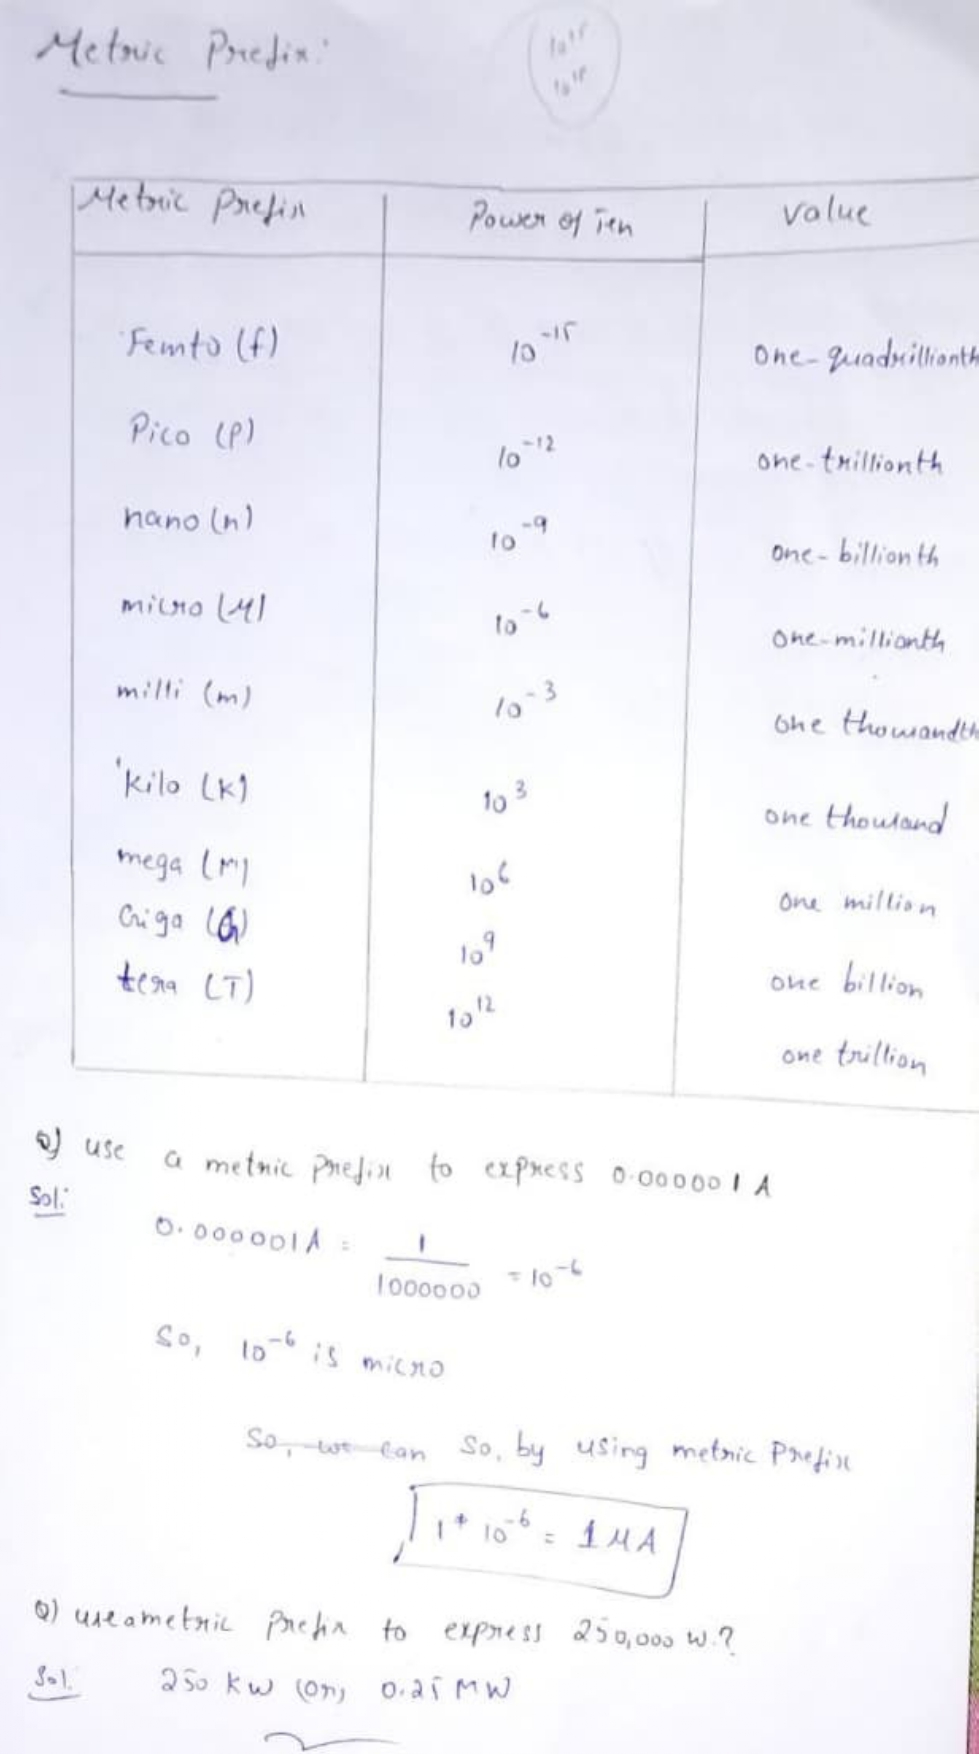 Metric Prefix:
10¹⁵
10¹⁸
Metric Prefix | Power of Ten | value
Femto (f) | 10⁻¹⁵ | one-quadrillionth
Pico (P) | 10⁻¹² | one-trillionth
nano (n) | 10⁻⁹ | one-billionth
micro (μ) | 10⁻⁶ | one-millionth
milli (m) | 10⁻³ | one thousandth
kilo (K) | 10³ | one thousand
mega (M) | 10⁶ | one million
Giga (G) | 10⁹ | one billion
tera (T) | 10¹² | one trillion
Q) use a metric prefix to express 0.000001 A
Sol:
0.000001A = 1/1000000 = 10⁻⁶
So, 10⁻⁶ is micro
So, we can So, by using metric Prefix
1 * 10⁻⁶ = 1 μA
Q) use a metric Prefix to express 250,000 W.?
Sol. 250 KW (or) 0.25 MW